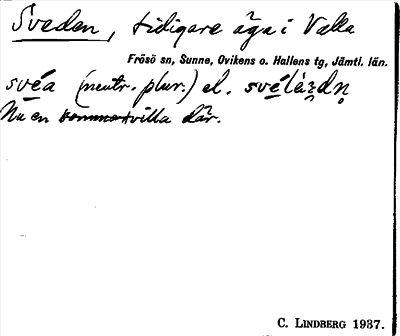 Sveden, tidigare äga i Valla
Frösö sn, Sunne, Ovikens o. Hallens tg, Jämtl. län.
svéa (neutr. plur.) el. svélàʒdn̥
Nu en sommarvilla där.
C. LINDBERG 1937.